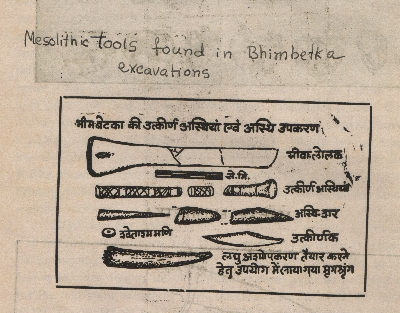 Mesolithic tools found in Bhimbetka
excavations
भीमबेटका की उत्कीर्ण अस्थियां एवं अस्थि उपकरण
ग्रीवा लोलक
से.मि.
उत्कीर्ण अस्थियां
अस्थि
उत्कीर्णक
लघु अश्मोपकरण तैयार करने
हेतु उपयोग में लाया गया मृगश्रृंग